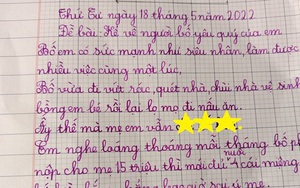 Thứ Tư ngày 18 tháng 5 năm 2022
Đề bài: Kể về người bố yêu quý của em
Bố em có sức mạnh như siêu nhân, làm được
nhiều việc cùng một lúc,
Bố vừa đi vứt rác, quét nhà, chùi nhà vệ sinh
bồng em bé rồi lại lo mẹ đi nấu ăn.
Ấy thế mà mẹ em vẫn
Em nghe loáng thoáng mỗi tháng bố phải
nộp cho mẹ 15 triệu thì mới đủ nuôi 4 cái miệng